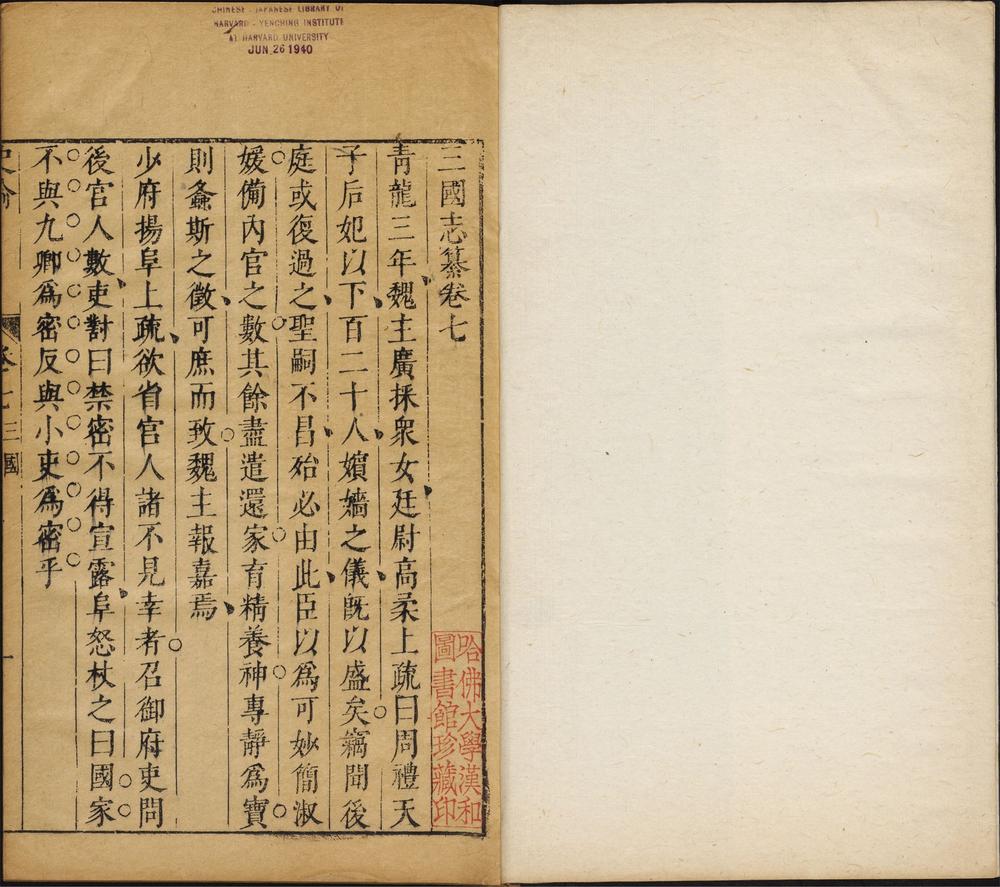 CHINESE - JAPANESE LIBRARY OF
HARVARD - YENCHING INSTITUTE
AT HARVARD UNIVERSITY
JUN 26 1940
三國志纂卷七
青龍三年魏主廣採衆女廷尉高柔上疏曰周禮天
子后妃以下百二十人嬪嬙之儀既以盛矣竊聞後
庭或復過之聖嗣不昌殆必由此臣以爲可妙簡淑
媛備內官之數其餘盡遣還家育精養神專靜爲寶
則螽斯之徵可庶而致魏主報嘉焉
少府揚阜上疏欲省宫人諸不見幸者召御府吏問
後宫人數吏對曰禁密不得宣露阜怒杖之曰國家
不與九卿爲密反與小吏爲密乎
卷七 三國 一
哈佛大學漢和
圖書館珍藏印